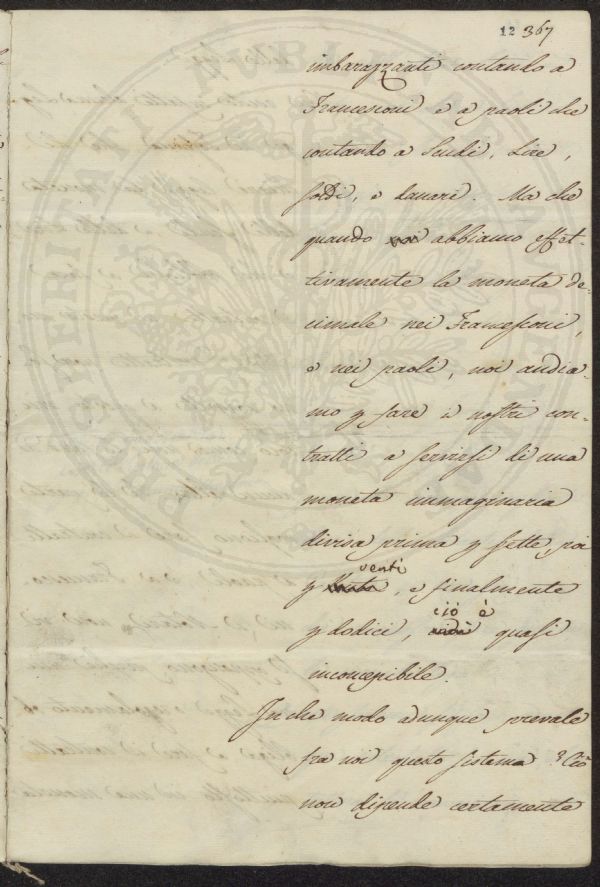 12 367
imbarazzanti contando a
Francesconi e a paoli che
contando a Scudi, Lire,
soldi, e danari. Ma che
quando noi abbiamo effet-
tivamente la moneta de-
cimale nei Francesconi,
e nei paoli, noi andia-
mo p fare i nostri con-
tratti a servirsi di una
moneta immaginaria
divisa prima p sette, poi
venti
p, e finalmente
ciò è
p dodici, quasi
inconcepibile.
In che modo adunque prevale
fra noi questo sistema? Ciò
non dipende certamente
PROPERITA I AVIA